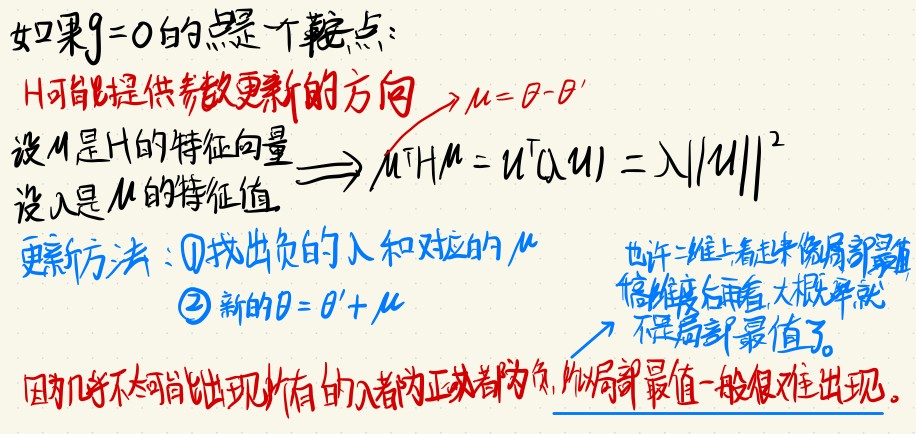 如果g=0的点是一个鞍点：
H可能提供参数更新的方向
μ=θ-θ'
设μ是H的特征向量
设λ是μ的特征值
⟹ μᵀHμ = uᵀ(λu) = λ||u||²
更新方法：①找出负的λ和对应的μ
② 新的θ=θ'+μ
也许二维上看起来像局部最值
高维度后再看，大概率就
不是局部最值了。
因为几乎不太可能出现所有的λ都为正或者都为负，所以局部最值一般很难出现。